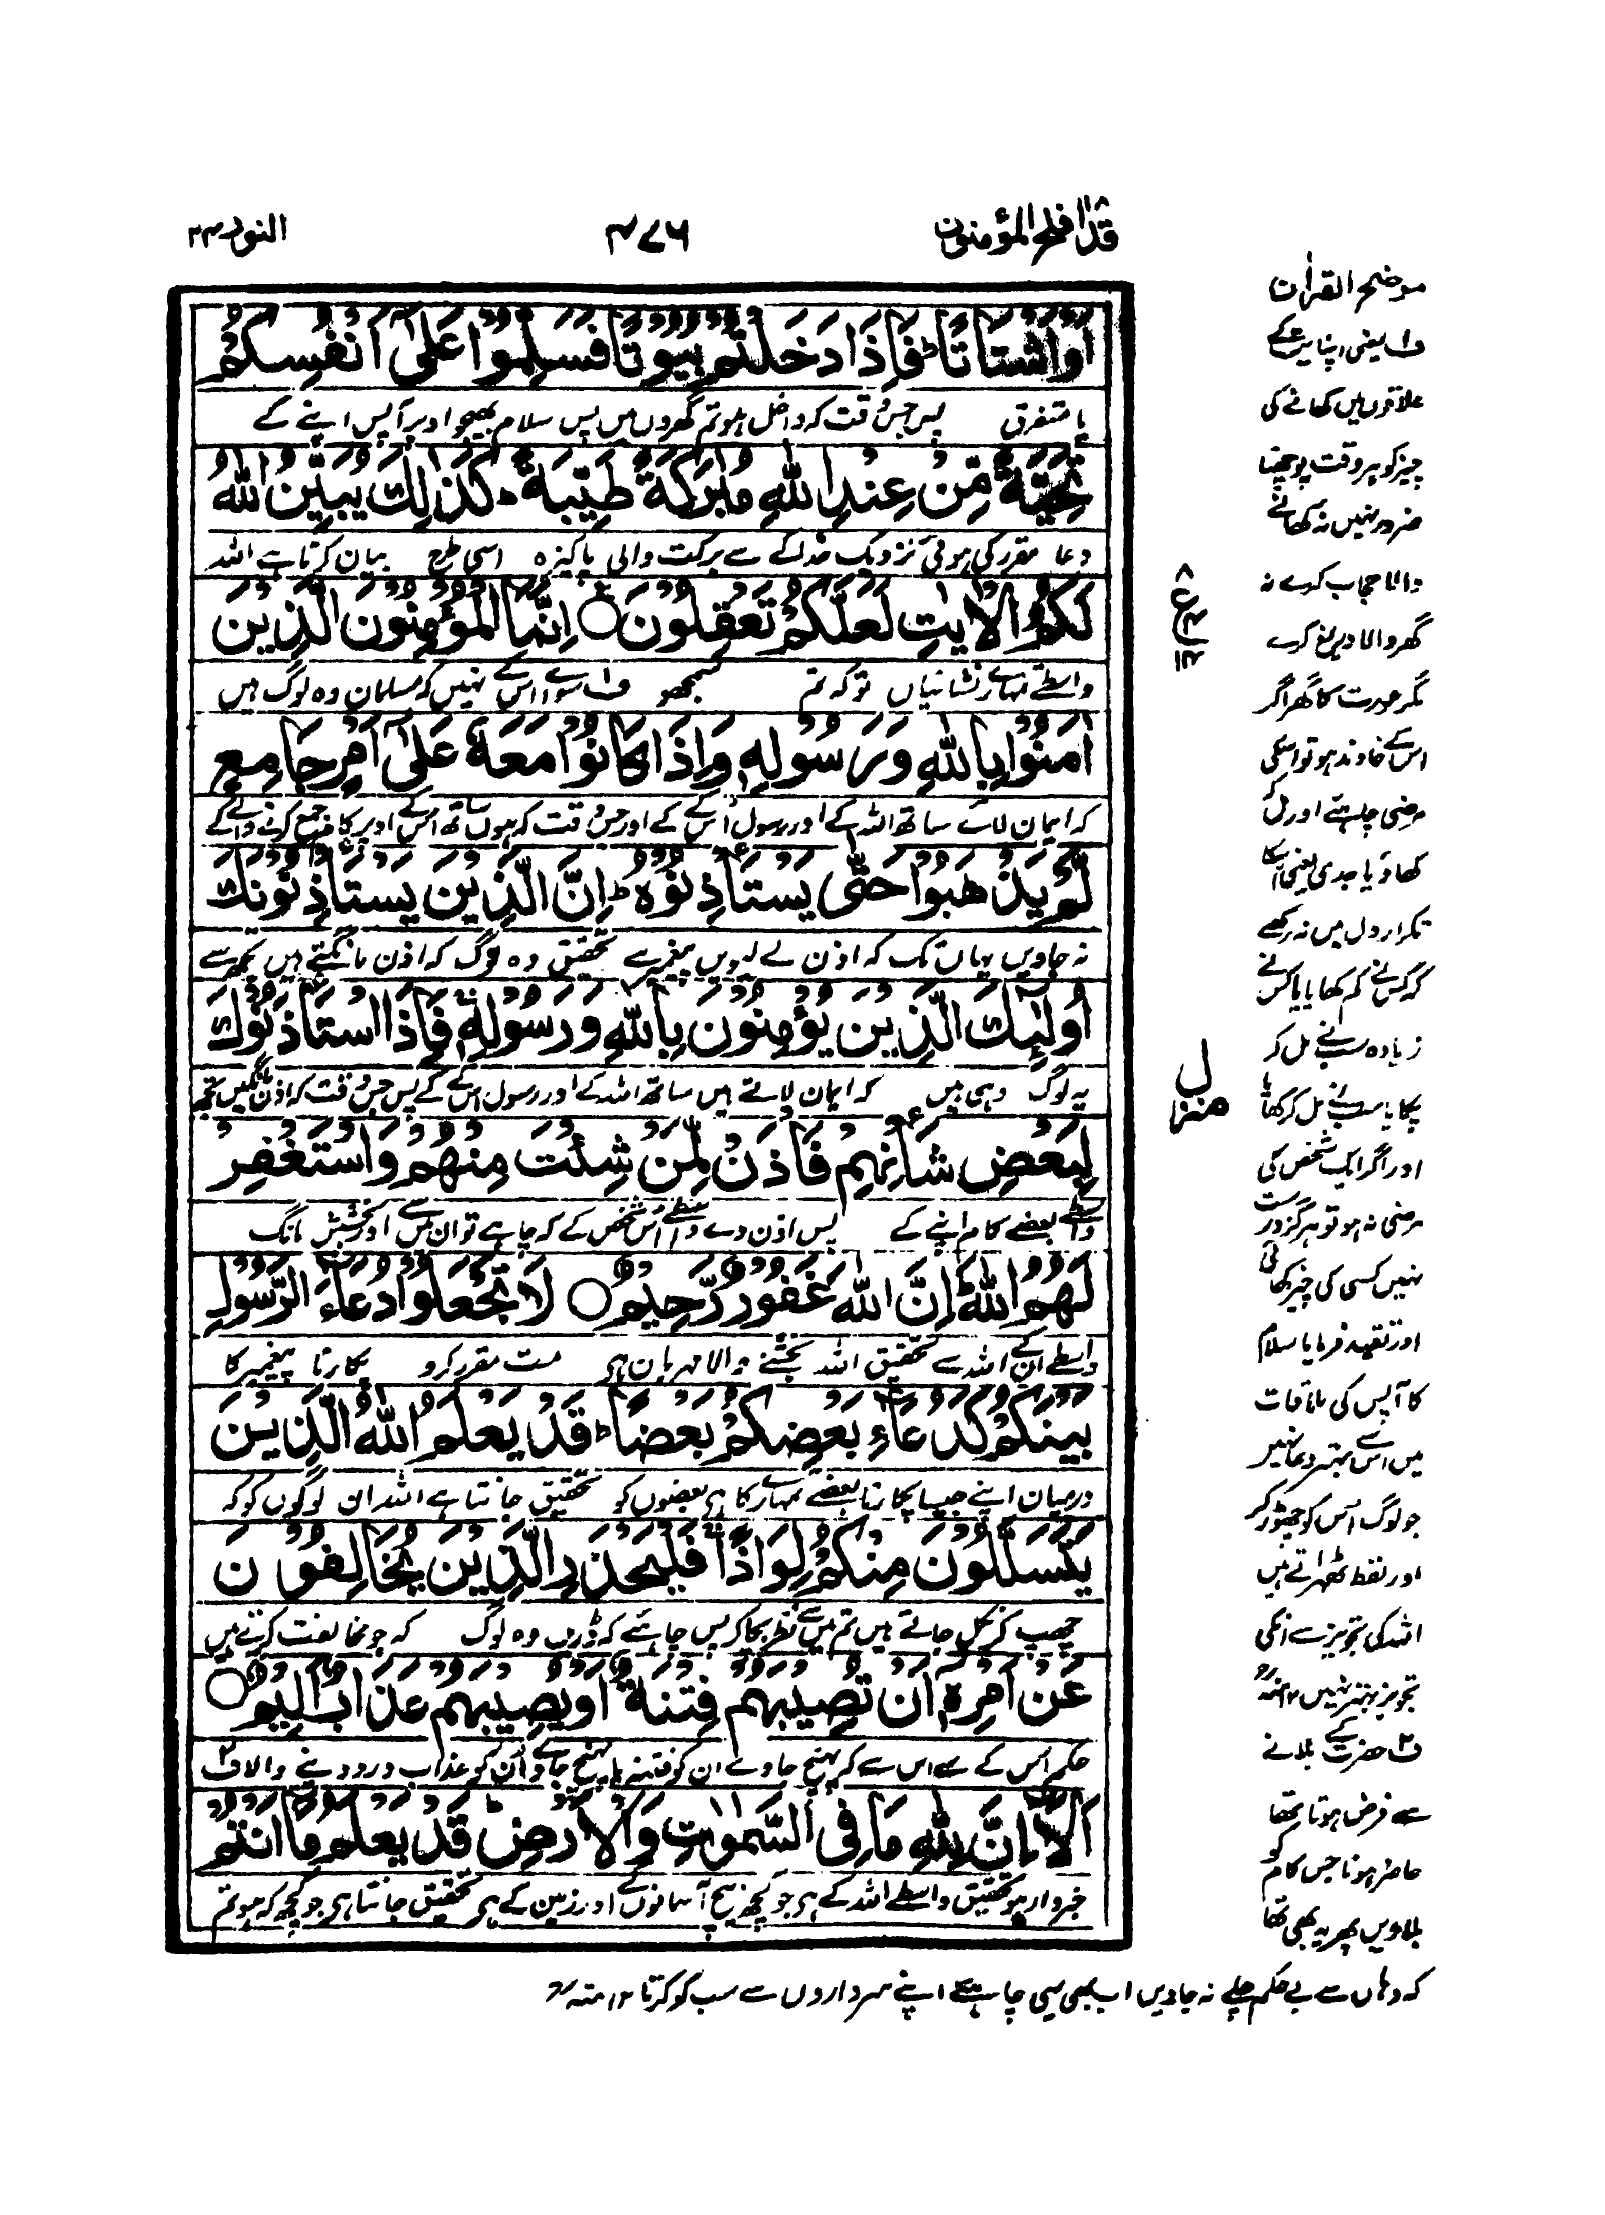 قد افلح المؤمنون ۱۸
۴۷۶
النور ۲۴
اَوْ اَشْتَاتًا ؕ فَاِذَا دَخَلْتُمْ بُيُوْتًا فَسَلِّمُوْا عَلٰۤى اَنْفُسِكُمْ
یا متفرق پس جس وقت کہ داخل ہو تم گھروں میں پس سلام بھیجو اوپر آپس اپنے کے
تَحِيَّةً مِّنْ عِنْدِ اللّٰهِ مُبٰرَكَةً طَيِّبَةً ؕ كَذٰلِكَ يُبَيِّنُ اللّٰهُ
دعا مقرر کی ہوئی نزدیک خدا کے سے برکت والی پاکیزہ اسی طرح بیان کرتا ہے اللہ
لَكُمُ الْاٰيٰتِ لَعَلَّكُمْ تَعْقِلُوْنَ ۞ اِنَّمَا الْمُؤْمِنُوْنَ الَّذِيْنَ
واسطے تمہارے نشانیاں تو کہ تم سمجھو ف۱ سوائے اس کے نہیں کہ مسلمان وہ لوگ ہیں
اٰمَنُوْا بِاللّٰهِ وَرَسُوْلِهٖ وَاِذَا كَانُوْا مَعَهٗ عَلٰۤى اَمْرٍ جَامِعٍ
کہ ایمان لائے ساتھ اللہ کے اور رسول اُس کے کے اور جس وقت کہ ہوں ساتھ اُس کے اوپر کام جمع کرنے والے کے
لَّمْ يَذْهَبُوْا حَتّٰى يَسْتَاْذِنُوْهُ ؕ اِنَّ الَّذِيْنَ يَسْتَاْذِنُوْنَكَ
نہ جاویں یہاں تک کہ اذن لے لیویں پیغمبر سے تحقیق وہ لوگ کہ اذن مانگتے ہیں تجھ سے
اُولٰٓئِكَ الَّذِيْنَ يُؤْمِنُوْنَ بِاللّٰهِ وَرَسُوْلِهٖ ۚ فَاِذَا اسْتَاْذَنُوْكَ
یہ لوگ وہی ہیں کہ ایمان لاتے ہیں ساتھ اللہ کے اور رسول اُس کے کے پس جس وقت کہ اذن مانگیں تجھ
لِبَعْضِ شَاْنِهِمْ فَاْذَنْ لِّمَنْ شِئْتَ مِنْهُمْ وَاسْتَغْفِرْ
واسطے بعضے کام اپنے کے پس اذن دے واسطے اُس شخص کے کہ چاہے تو ان میں سے اور بخشش مانگ
لَهُمُ اللّٰهَ ؕ اِنَّ اللّٰهَ غَفُوْرٌ رَّحِيْمٌ ۞ لَا تَجْعَلُوْا دُعَآءَ الرَّسُوْلِ
واسطے ان کے اللہ سے تحقیق اللہ بخشنے والا مہربان ہی مت مقرر کرو پکارنا پیغمبر کا
بَيْنَكُمْ كَدُعَآءِ بَعْضِكُمْ بَعْضًا ؕ قَدْ يَعْلَمُ اللّٰهُ الَّذِيْنَ
درمیان اپنے جیسا پکارنا بعضے تمہارے کا ہی بعضوں کو تحقیق جانتا ہے اللہ ان لوگوں کو کہ
يَتَسَلَّلُوْنَ مِنْكُمْ لِوَاذًا ۚ فَلْيَحْذَرِ الَّذِيْنَ يُخَالِفُوْنَ
چھپ کر نکل جاتے ہیں تم میں سے نظر بچا کر پس چاہئے کہ ڈریں وہ لوگ کہ جو مخالفت کرتے ہیں
عَنْ اَمْرِهٖۤ اَنْ تُصِيْبَهُمْ فِتْنَةٌ اَوْ يُصِيْبَهُمْ عَذَابٌ اَلِيْمٌ ۞
حکم اُس کے سے اس سے کہ پہنچ جاوے ان کو فتنہ یا پہنچ جاوے اُن کو عذاب درد دینے والا ف۲
اَلَاۤ اِنَّ لِلّٰهِ مَا فِى السَّمٰوٰتِ وَالْاَرْضِ ؕ قَدْ يَعْلَمُ مَاۤ اَنْتُمْ
خبردار ہو تحقیق واسطے اللہ کے ہی جو کچھ بیچ آسمانوں کے اور زمین کے ہی تحقیق جانتا ہی جو کچھ کہ ہو تم
ع
۱۴
منزل
موضح القرآن
ف۱ یعنی اپنایت کے
علاقوں میں کھانے کی
چیز کو ہر وقت پوچھنا
ضرور نہیں نہ کھانے
والا حجاب کرے نہ
گھر والا دریغ کرے
مگر عورت کا گھر اگر
اس کے خاوند ہو تو اسکی
مرضی چاہئے اور مل کر
کھاؤ یا جدی یعنی اسکا
تکرار دل میں نہ رکھے
کہ کس نے کم کھایا یا کس نے
زیادہ سب نے مل کر
پکایا سب نے مل کر کھایا
اور اگر ایک شخص کی
مرضی نہ ہو تو ہرگز درست
نہیں کسی کی چیز کھانی
اور تقید فرمایا سلام
کا آپس کی ملاقات
میں اس سے بہتر دعا نہیں
جو لوگ اس کو چھوڑ کر
اور لفظ ٹھہراتے ہیں
اللہ کی تجویز سے انکی
تجویز بہتر نہیں ۱۲ منہ
ف۲ حضرت کے بلانے
سے فرض ہوتا تھا
حاضر ہونا جس کام کو
بلاویں پھر یہ بھی تھا
کہ وہاں سے بے حکم چلے نہ جاویں اب بھی یہی چاہئے اپنے سرداروں سے سب کو کرنا ۱۲ منہ